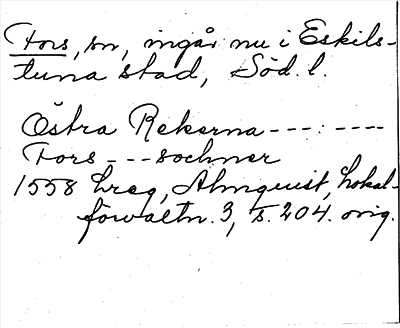 Fors, sn, ingår nu i Eskils-
tuna stad, Söd. l.
Östra Rekarna ---:----
Fors --- sochner
1558 Lreg, Almquist, Lokal-
förvaltn. 3, s. 204. orig.